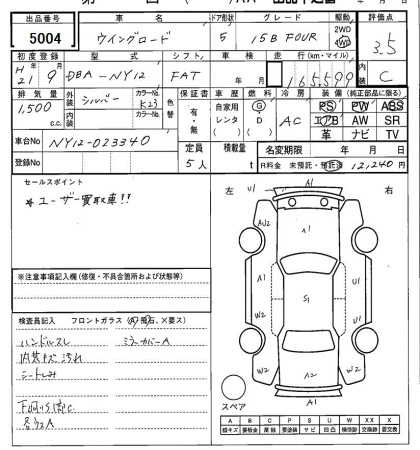 出品番号 車名 ドア形状 グレード 駆動 評価点
5004 ウイングロード 5 15B FOUR 2WD 4WD 3.5
初度登録 型式 シフト 車検 走行(km・マイル) 内装
H21 9 DBA-NY12 FAT 年 月 165,599 C
排気量 外装 シルバー カラーNo. K23 色替 保証書 車歴 燃料 冷房 装備(純正部品に限る)
1,500 c.c. 内装 カラーNo. 有・無 自家用 レンタ G D AC PS PW ABS
エアB AW SR
革 ナビ TV
車台No NY12-023340 定員 積載量 名変期限 年 月 日
登録No 5人 t R料金 未預託・預託済 12,240円
セールスポイント
*ユーザー買取車!!
左 U1 A1 右
U1
AU2 A1
A1 S1 A1
W2 W2
W2 A2
A1
スペア
※注意事項記入欄(修復・不具合箇所および状態等)
検査員記入 フロントガラス(A、飛石、×要ス)
ハンドルスレ ミラーカバーA
内装キズ汚れ
シートしみ
各ウスA
A B C P S U W X XX ×
線キズ 要板金 腐蝕 要塗装 サビ 凹凸 補修跡 交換跡 要交換